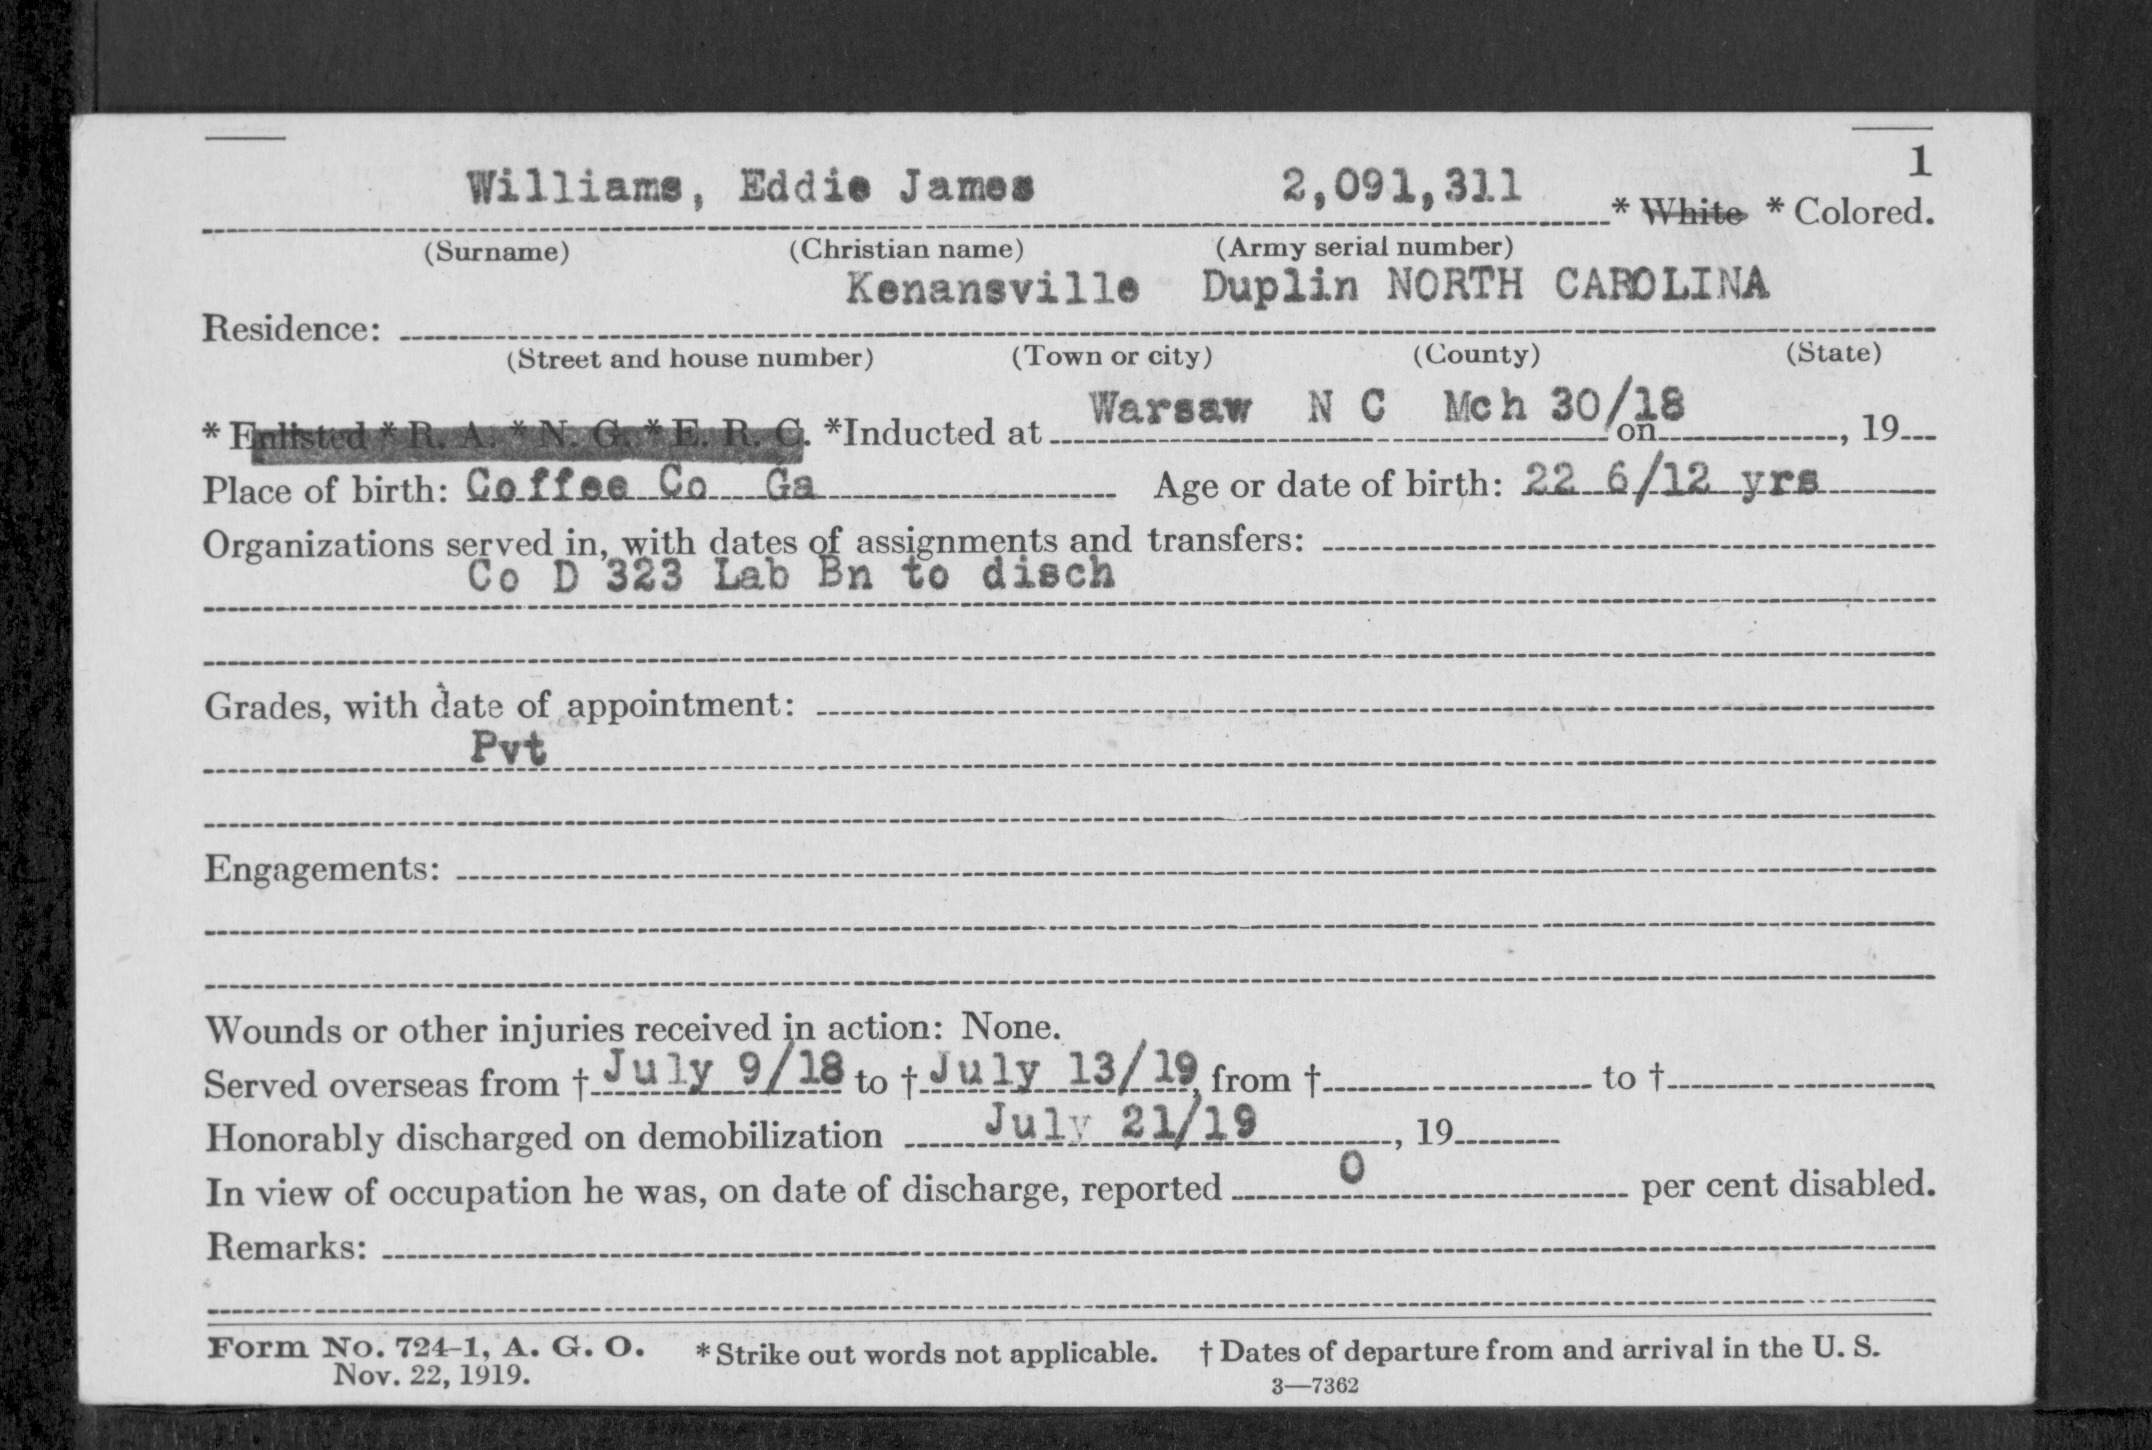 1
Williams, Eddie James 2,091,311 * White * Colored.
(Surname) (Christian name) (Army serial number)
Kenansville Duplin NORTH CAROLINA
Residence:
(Street and house number) (Town or city) (County) (State)
Warsaw N C Mch 30/18
* Enlisted * R. A. * N. G. * E. R. C. *Inducted at on , 19
Place of birth: Coffee Co Ga Age or date of birth: 22 6/12 yrs
Organizations served in, with dates of assignments and transfers:
Co D 323 Lab Bn to disch
Grades, with date of appointment:
Pvt
Engagements:
Wounds or other injuries received in action: None.
Served overseas from † July 9/18 to † July 13/19, from † to †
Honorably discharged on demobilization July 21/19 , 19
In view of occupation he was, on date of discharge, reported 0 per cent disabled.
Remarks:
Form No. 724-1, A. G. O. * Strike out words not applicable. † Dates of departure from and arrival in the U. S.
Nov. 22, 1919. 3—7362